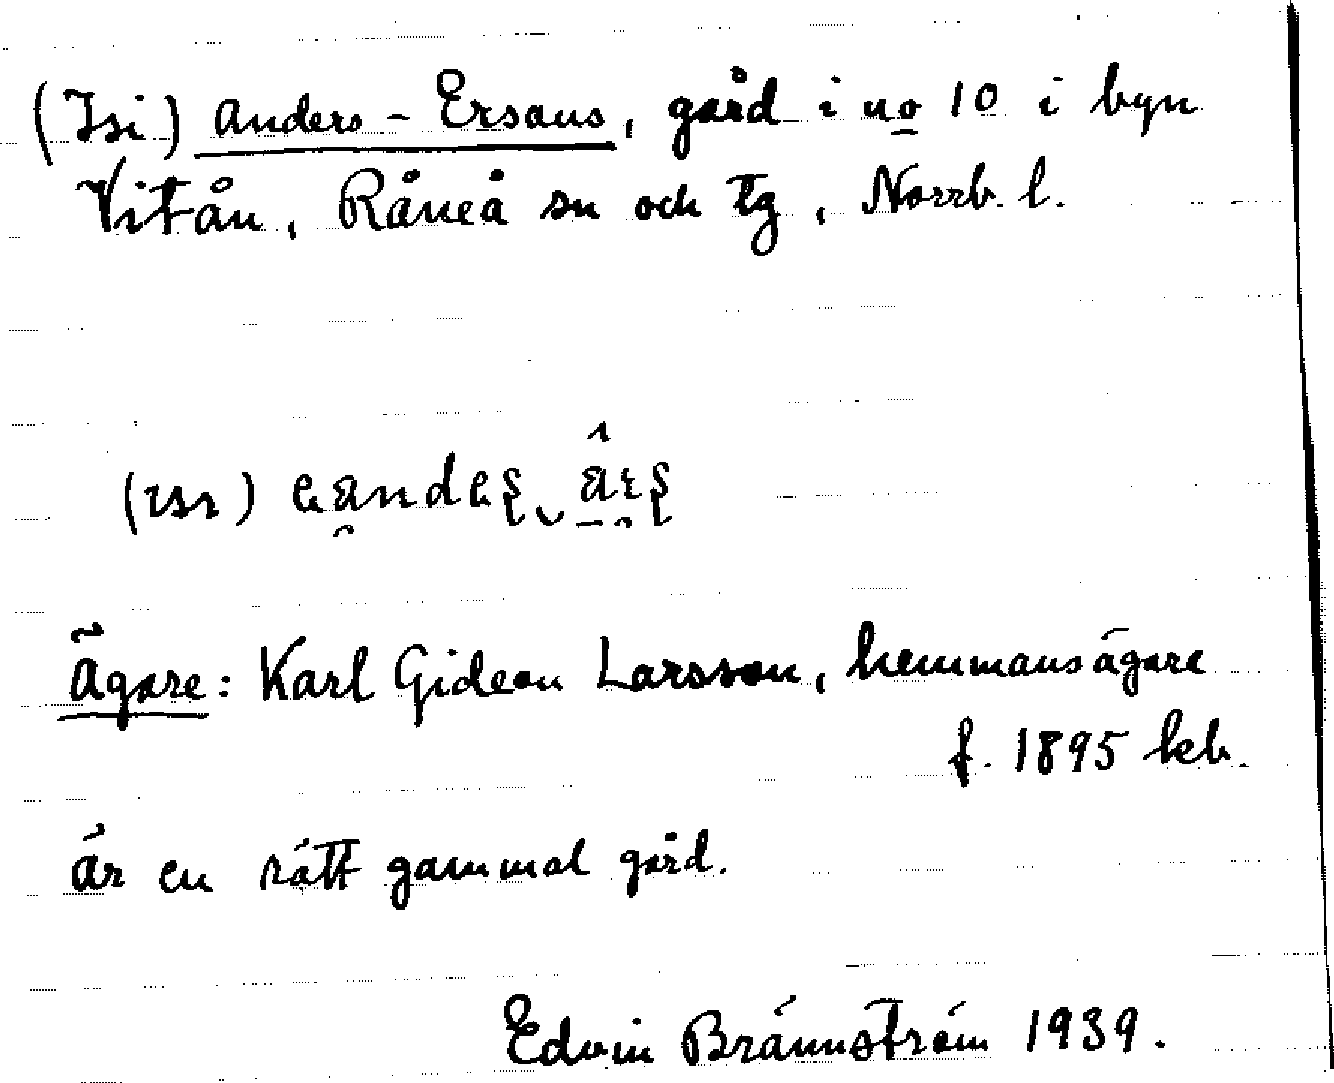 (Isi) Anders-Ersans, gård i no 10 i byn
Vitån, Råneå sn och tg, Norrb. l.
Ägare: Karl Gideon Larsson, hemmansägare
f. 1895 kb.
Är en rätt gammal gård.
Edvin Brännström 1939.